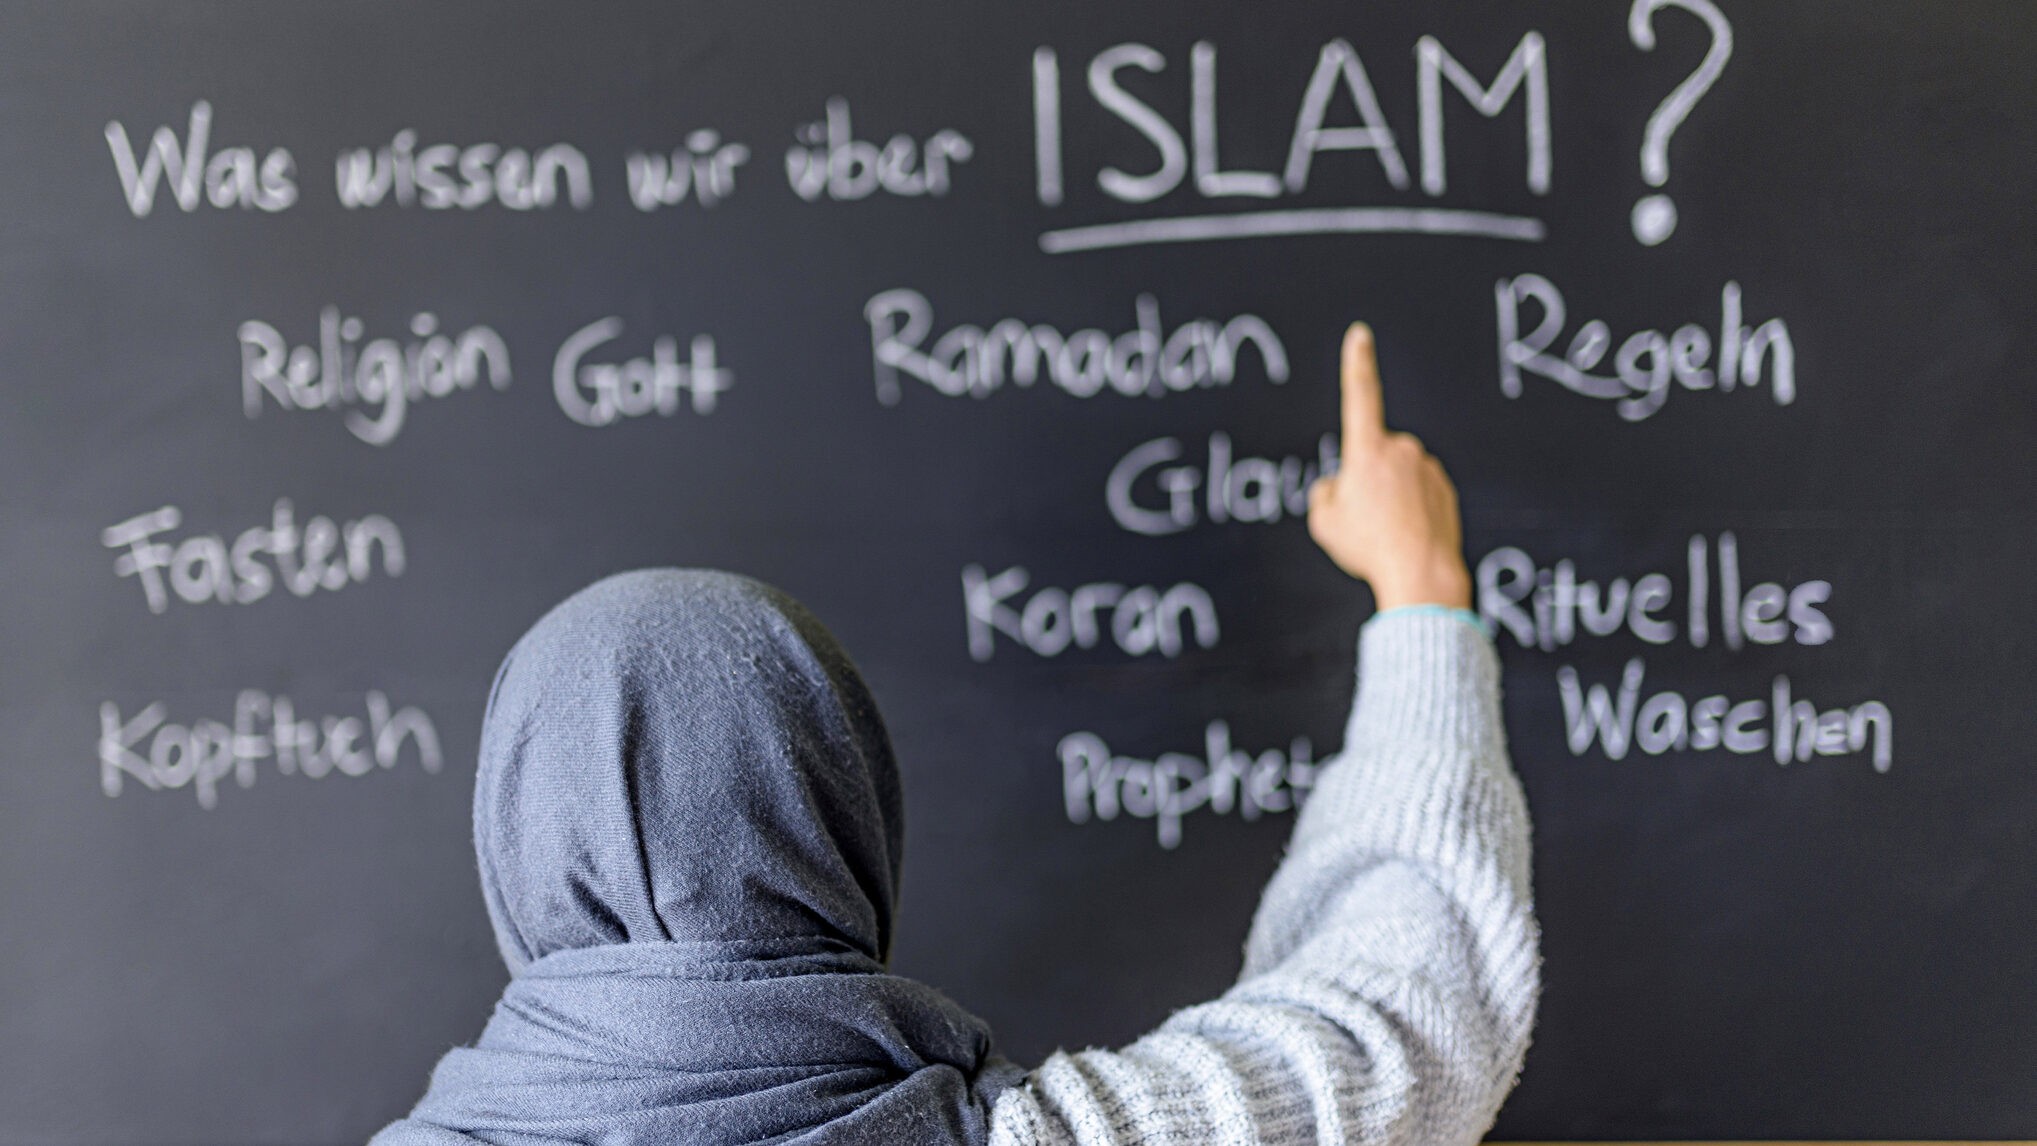 Was wissen wir über ISLAM?
Religion Gott Ramadan Regeln
Glau
Fasten Koran Rituelles
Waschen
Kopftuch Prophet